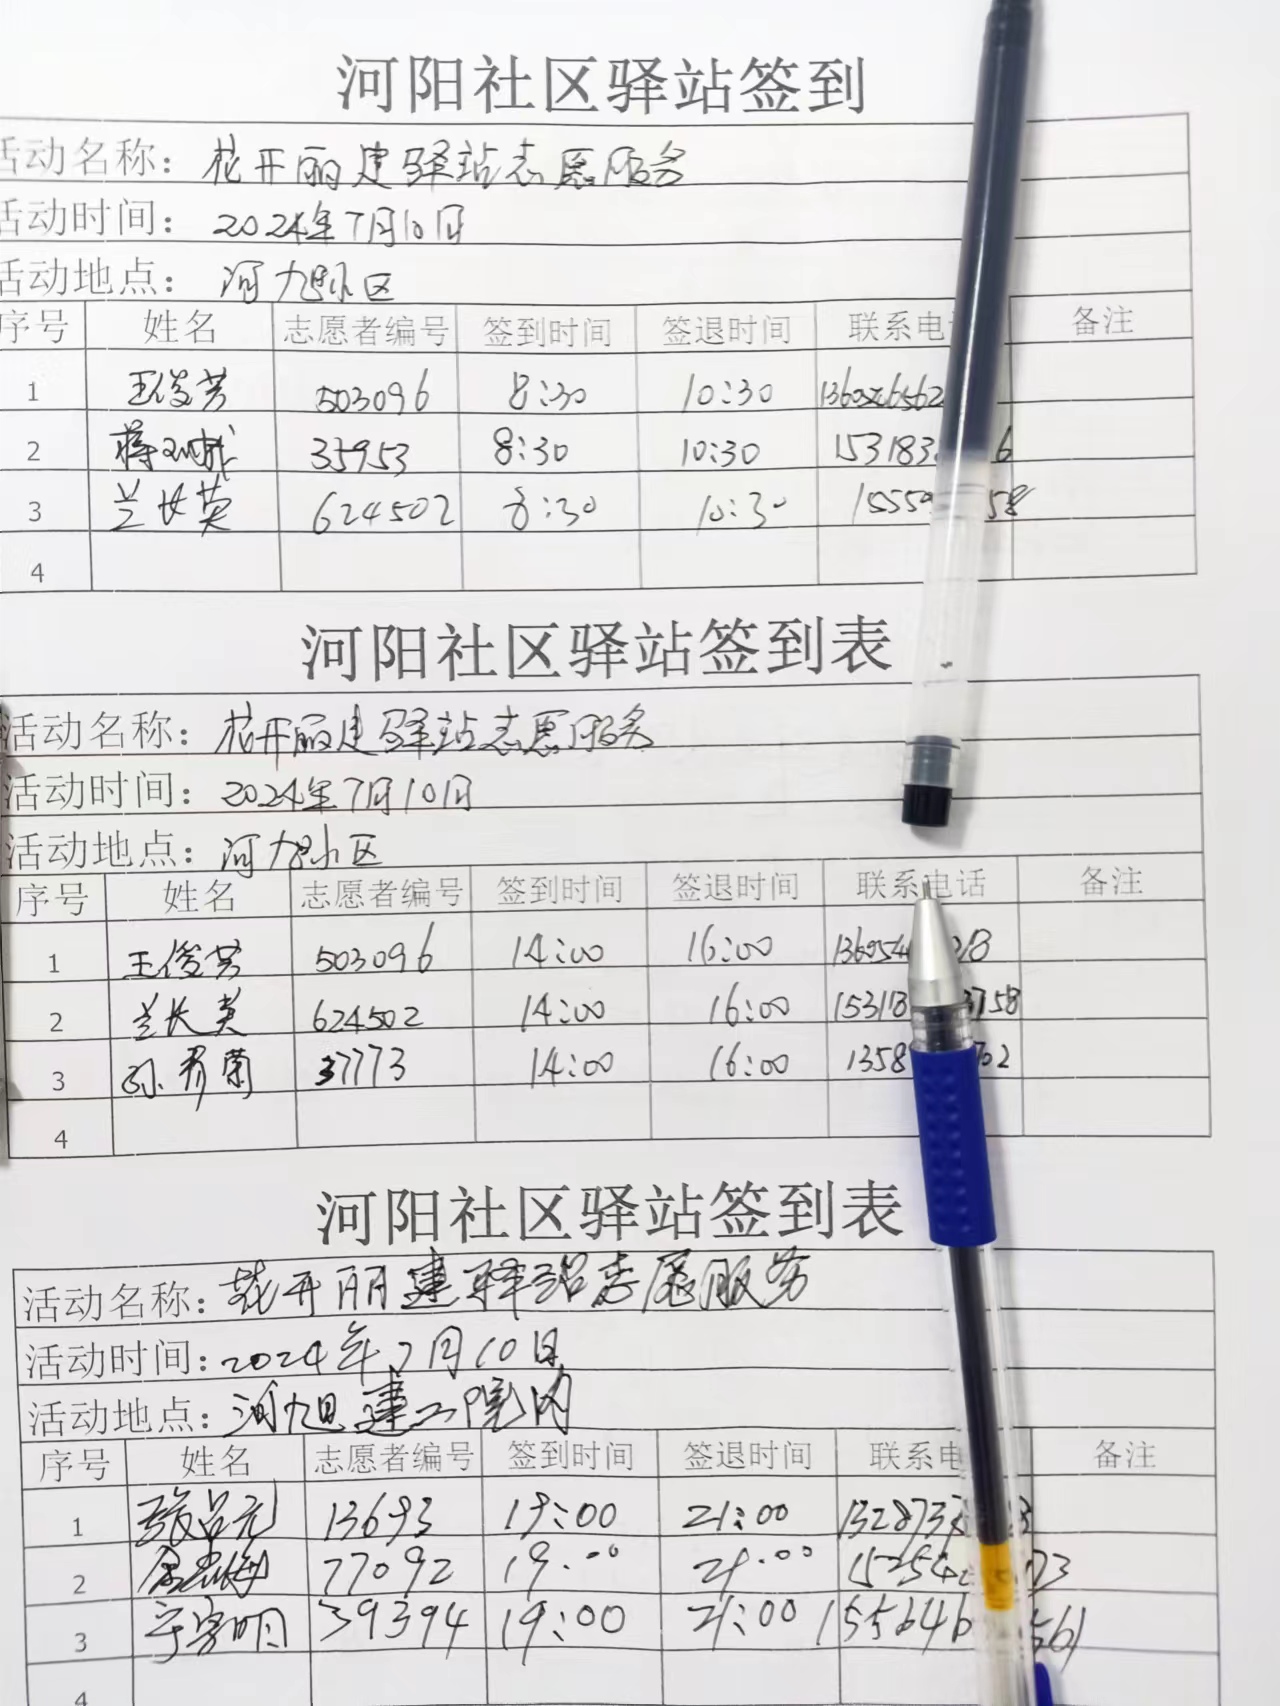 河阳社区驿站签到
活动名称：花开丽建驿站志愿服务
活动时间：2024年7月10日
活动地点：河旭小区
序号 姓名 志愿者编号 签到时间 签退时间 联系电话 备注
1 王俊芳 503096 8:30 10:30
2 蒋 35953 8:30 10:30 153183 6
3 兰长英 624502 8:30 10:30 15559 58
4
河阳社区驿站签到表
活动名称：花开丽建驿站志愿服务
活动时间：2024年7月10日
活动地点：河旭小区
序号 姓名 志愿者编号 签到时间 签退时间 联系电话 备注
1 王俊芳 503096 14:00 16:00 136954 318
2 兰长英 624502 14:00 16:00 15318 3758
3 孙 菊 37773 14:00 16:00 1358 702
4
河阳社区驿站签到表
活动名称：花开丽建驿站志愿服务
活动时间：2024年7月10日
活动地点：河旭建工院内
序号 姓名 志愿者编号 签到时间 签退时间 联系电 备注
1 张吕元 13693 19:00 21:00 132873
2 77092 19:00 21:00 15254 73
3 于客明 39394 19:00 21:00 155646 561
4